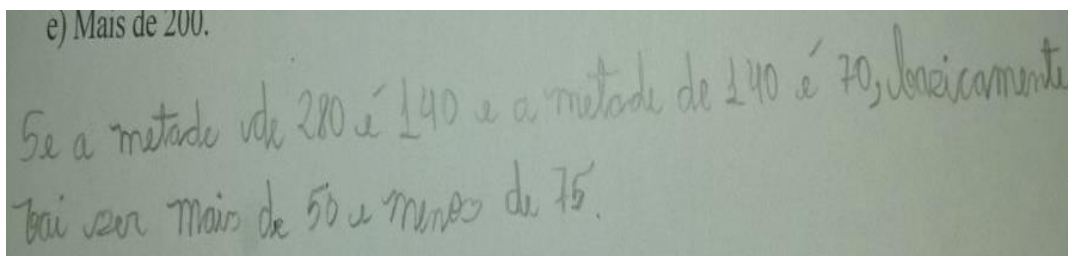 e) Mais de 200.
Se a metade de 280 é 140 e a metade de 140 é 70, basicamente
vai ser mais de 50 e menos de 75.